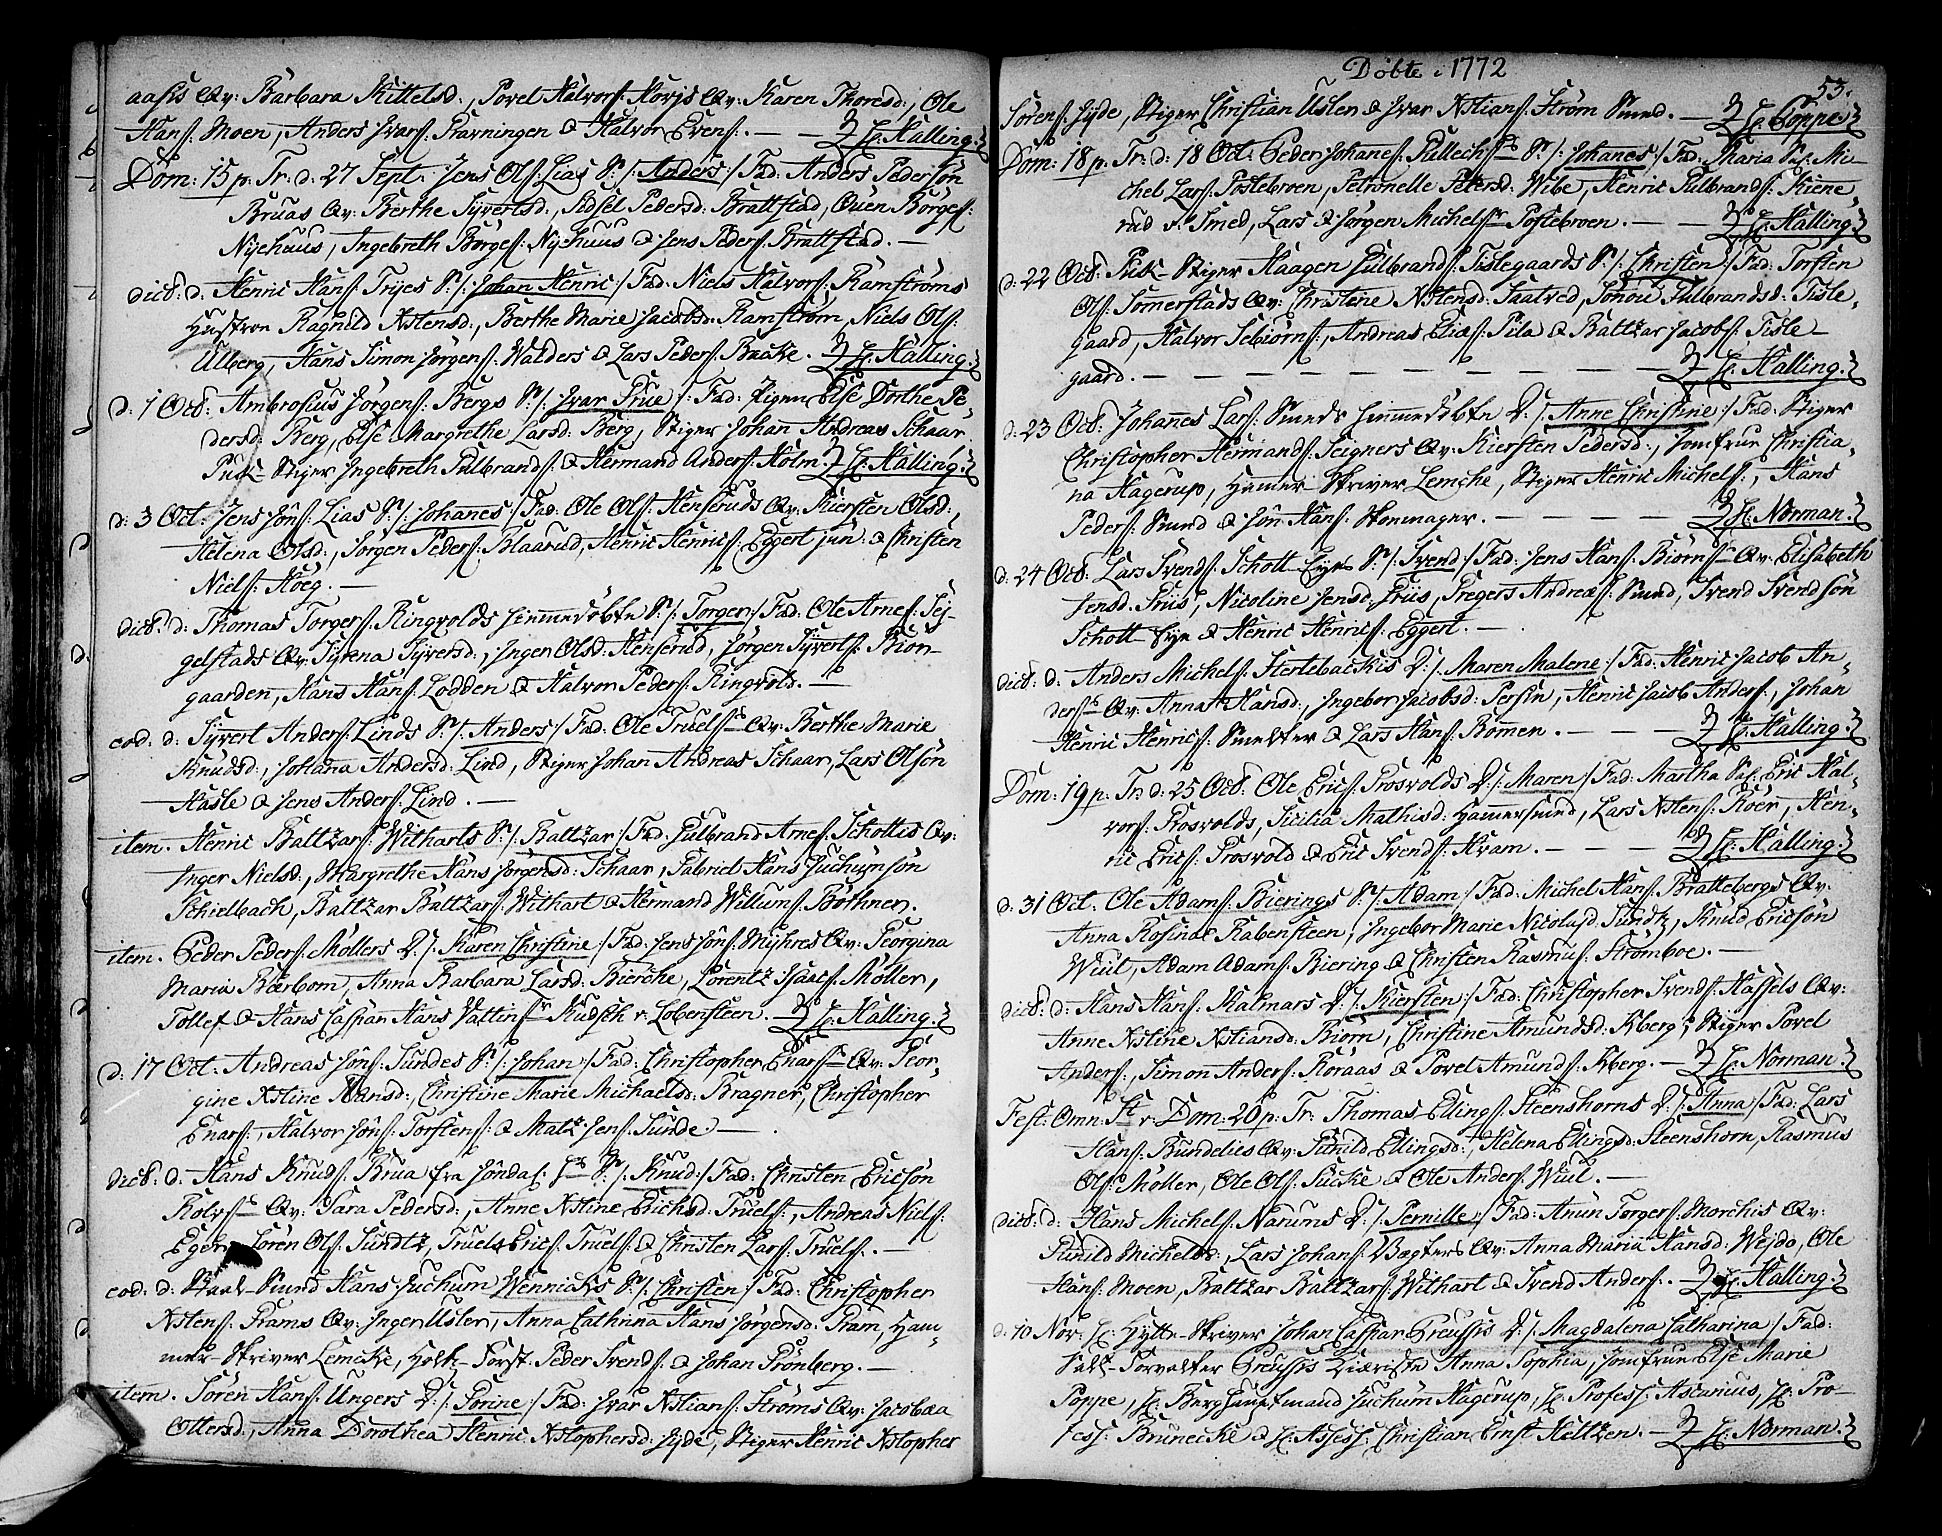 aasis Qv: Barbara Kittelsd:, Povel Halvors: Korys Qv: Karen Thoresd:, Ole
Hans: Moen, Anders Ivars: Ravningen & Halvor Evens: — — H: Halling.
Dom: 15 p. Tr: d: 27 Sept: Jens Ols: Lias S: /: Anders :/ Fad: Anders Pederson
Bruas Qv: Berthe Syvertsd:, Sidsel Pedersd: Brattstad, Ouen Börges:
Nyehuus, Ingebreth Börges: Nyehuus & Jens Peders: Brattstad. —
dict: d: Henric Hans: Tryes S: /: Johan Henric :/ Fad: Niels Halvors: Ramströms
Hustroe Ragnild Xstensd:, Berthe Marie Jacobsd: Ramström, Niels Ols:
Ulberg, Hans Simon Jörgens: Walders & Lars Peders: Baake. H: Halling.
d: 1 Oct: Ambrosius Jörgens: Bergs S: /: Ivar Prue :/ Fad: Pigen Else Dorthe Pe-
dersd: Berg, Else Margrethe Larsd: Berg, Stiger Johan Andreas Schaar
Puk-Stiger Ingebreth Gulbrands: & Hermand Anders: Holm. H: Halling.
d: 3 Oct: Jens Jöns: Lias S: /: Johanes :/ Fad: Ole Ols: Henseruds Qv: Kiersten Olsd:,
Helena Olsd:, Jörgen Peders: Blaarud, Henric Henrics: Eggert jun: & Christen
Niels: Höeg. —
dict: d: Thomas Torgers: Ringvolds hiemmedöbte S: /: Torger :/ Fad: Ole Arnes: Tej-
gelstads Qv: Syrena Syversd:, Inger Olsd: Henserud, Jörgen Syverts: Biön-
gaarden, Hans Hans: Lodden & Halvor Peders: Ringvold. —
eod: d: Syvert Anders: Linds S: /: Anders :/ Fad: Ole Truels: Qv: Berthe Marie
Knudsd:, Johana Andersd: Lind, Stiger Johan Andreas Schaar, Lars Olsön
Hasle & Jens Anders: Lind. —
item. Henric Baltzars: Witharts S: /: Baltzar :/ Fad: Gulbrand Arnes: Schottis Qv:
Inger Nielsd:, Margrethe Hans Jörgensd: Schaar, Gabriel Hans Juchumsön
Schielbach, Baltzar Baltzars: Withart & Hermand Willums: Böthner.
item. Peder Peders: Möllers D: /: Karen Christine :/ Fad: Jens Jöns: Myhres Qv: Georgina
Maria Bærbom, Anna Barbara Larsd: Bierche, Lorentz Isacs: Möller,
Tollef & Hans Caspar Hans Vattins: Kudsch v: Lobensteen. H: Halling.
d: 17 Oct: Andreas Jöns: Sundes S: /: Johan :/ Fad: Christopher Enars: Qv: Geor-
gine Xstine Hansd:, Christine Marie Michaelsd: Bragner, Christopher
Enars:, Halvor Jöns: Torstens: & Matz Jens: Sunde. —
dict: d: Hans Knuds: Brua fra Söndal: S: /: Knud :/ Fad: Christen Ericsön
Rolvs: Qv: Sara Pedersd:, Anne Xstine Erichsd: Truels:, Andreas Niels:
Eger, Sören Ols: Sundtz, Truels Erics: Truels: & Christen Lars: Truels:. —
eod: d: Staal-Smed Hans Juchum Wennichs S: /: Christen :/ Fad: Christopher
Xstens: Frams Qv: Inger Usler, Anna Cathrina Hans Jörgensd: Fram, Ham-
mer-Skriver Lemcke, Holtz-Först: Peder Svends: & Johan Grönberg. —
item. Sören Hans: Ungers D: /: Sörine :/ Fad: Ivar Xstians: Ströms Qv: Jacobæa
Ottersd:, Anna Dorothea Henric Xstophersd: Hyde, Stiger Henric Xstopher
Döbte i 1772
53.
Sörens: Hyde, Stiger Christian Usler & Ivar Xstians: Ström Smed. — H: Poppe
Dom: 18 p. Tr: d: 18 Oct: Peder Johanes: S: /: Johanes :/ Fad: Maria Sal: Mi-
chel Lars: Postebroen, Petronelle Petersd: Wibe, Henric Gulbrands: Kiene-
rud v: Smed, Lars & Jörgen Michels: Postebroen. — — H: Halling.
d: 22 Oct: Puk-Stiger Haagen Gulbrands: Tislegaards S: /: Christen :/ Fad: Torsten
Ols: Somerstads Qv: Christine Xstensd: Saatved, Gönou Gulbrandsd: Tisle-
gaard, Halvor Sebiörns:, Andreas Elias: Pila & Baltzar Jacobs: Tisle-
gaard. — — — — — — — — — H: Halling.
d: 23 Oct: Johanes Lars: Smeds hiemmedöbte D: /: Anne Christine :/ Fad: Stiger
Christopher Hermands: Seigners Qv: Kiersten Pedersd:, Jomfrue Christia-
na Hagerup, Hamer-Skriver Lemche, Stiger Henric Michels:, Hans
Peders: Smed & Jön Hans: Skomager. — — — — — H: Norman.
d: 24 Oct: Lars Svends: Schott-Eye S: /: Svend :/ Fad: Jens Hans: Biörns: Qv: Elisabeth
Jensd: Friis, Nicoline Jensd: Friis, Gregers Andreæs: Smed, Svend Svendsön
Schott-Eye & Henric Henrics: Eggert. —
dict: d: Anders Michels: Hertebachis D: /: Maren Malene :/ Fad: Henric Jacob An-
ders: Qv: Anna Hansd:, Ingebor Jacobsd: Persin, Henric Jacob Anders:, Johan
Henric Henrics: Smelter & Lars Hans: Bömen. — — — H: Halling.
Dom: 19 p: Tr: d: 25 Oct: Ole Erics: Grosvolds D: /: Maren :/ Fad: Martha Sal: Eric Hal-
vors: Grosvolds, Sicilia Mathisd: Hamersmed, Lars Xstens: Röer, Hen-
ric Erics: Grosvold & Eric Svends: Hvam. — — — H: Halling.
d: 31 Oct: Ole Adams: Bierings S: /: Adam :/ Fad: Michel Hans: Brattebergs Qv:
Anna Rosina Rabensteen, Ingebor Marie Nicolasd: Sundtz, Knud Ericsön
Wiul, Adam Adams: Biering & Christen Rasmus: Strömboe. —
dict: d: Hans Hans: Kalmars D: /: Kiersten :/ Fad: Christopher Svends: Hassels Qv:
Anne Xstine Xstiansd: Biörn, Christine Amundsd: Aberg, Stiger Povel
Anders:, Simon Anders: Röraas & Povel Amunds: Aberg. — H: Norman.
Fest: Omn: St: v: Dom: 20 p: Tr: Thomas Ellings: Steenshorns D: /: Anna :/ Fad: Lars
Hans: Bundelies Qv: Gunild Ellingsd:, Helena Ellingsd: Steenshorn, Rasmus
Ols: Möller, Ole Ols: Sucke & Ole Anders: Wiul. —
dict: d: Hans Michels: Narums D: /: Pernille :/ Fad: Anun Torgers: Morchis Qv:
Gunild Michelsd:, Lars Johans: Vægters Qv: Anna Maria Hansd: Wejdo, Ole
Hans: Moen, Baltzar Baltzars: Withart & Svend Anders:. — H: Halling.
d: 10 Nov: H: Hytte-Skriver Johan Caspar Preussis D: /: Magdalena Catharina :/ Fad:
Salt-Forvalter Preussis Kiæreste Anna Sophia, Jomfrue Else Marie
Poppe, H: Berghauptmand Juchum Hagerup, H: Profess: Ascanius, H: Pro-
fess: Brünecke & H: Assess: Christian Ernst Heltzen. — H: Norman.